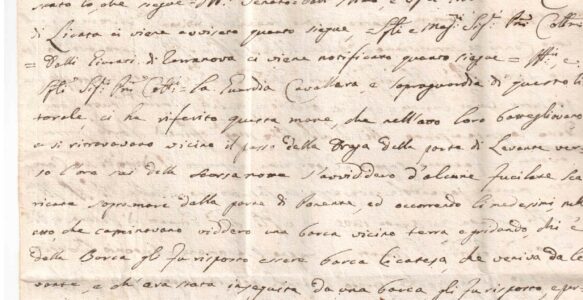 stato lo che siegue = Ill. Senato
di Licata ci viene avvisato quanto siegue = Ill. e
= Dalli Giurati di Terranova ci viene notificato quanto siegue = Ill. e
la Guardia Cavallara e sopraguardia di questo li
torale, ci ha riferito questa mane, che nell'atto loro
e si ritrovavano vicino il passo della della parte di Levante ver
so l'ora sei della scorsa notte s'avviddero d'alcune fucilate sca
ricate sopra mare dalla parte di Ponente, ed occorrendo li medesimi nell
che caminavano viddero una barca vicino terra, e gridando, chi è
dalla Barca gli fu risposto essere barca licatesa, che veniva da le
vante, e ch'era stata inseguita da una barca gli fu risposto